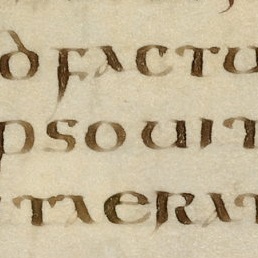 d factu
psouit
taerat